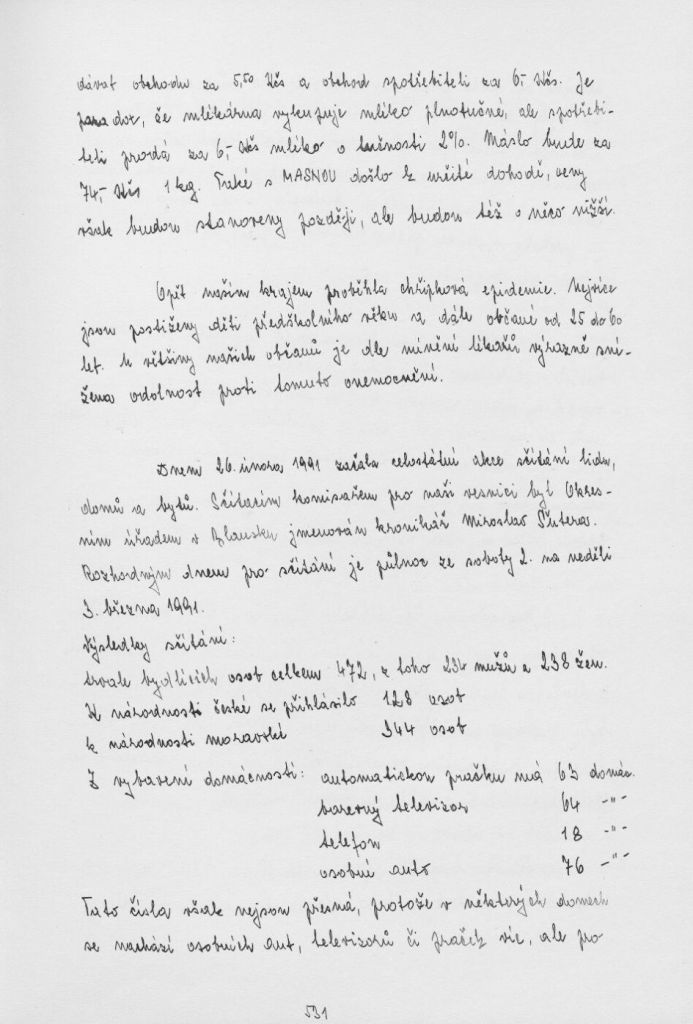 dávat obchodu za 5,50 Kčs a obchod spotřebiteli za 6,- Kčs. Je
paradox, že mlékárna vykupuje mléko plnotučné, ale spotřebi-
teli prodá za 6,- Kčs mléko o tučnosti 2%. Máslo bude za
74,- Kčs 1 kg. Také s MASNOU došlo k určité dohodě, ceny
však budou stanoveny později, ale budou též o něco nižší.
Opět naším krajem proběhla chřipková epidemie. Nejvíce
jsou postiženy děti předškolního věku a dále občané od 25 do 60
let. U většiny našich občanů je dle mínění lékařů výrazně sní-
žena odolnost proti tomuto onemocnění.
Dnem 26. února 1991 začala celostátní akce sčítání lidu,
domů a bytů. Sčítacím komisařem pro naši vesnici byl Okres-
ním úřadem v Blansku jmenován kronikář Miroslav Šutera.
Rozhodným dnem pro sčítání je půlnoc ze soboty 2. na neděli
3. března 1991.
Výsledky sčítání:
trvale bydlících osob celkem 472, z toho 234 mužů a 238 žen.
K národnosti české se přihlásilo 128 osob
k národnosti moravské 344 osob
Z vybavení domácností: automatickou pračku má 63 domác.
barevný televizor 64 -"-
telefon 18 -"-
osobní auto 76 -"-
Tato čísla však nejsou přesná, protože v některých domech
se nachází osobních aut, televizorů či praček víc, ale pro-
531